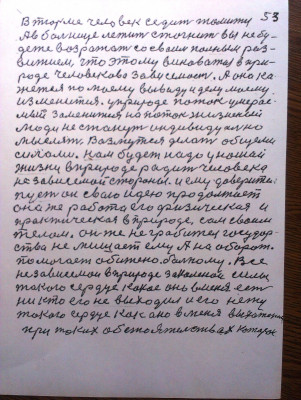 53
В тюрме человек седит томиту
А в болнице летит стогнит вы небу-
дете возрожать со своим полным раз-
витием, что этому виноватая в при-
роде человеково зависемост. А оно ка-
жется по моему выводу и делу моему
изменится. у природе поток умерае-
мый заменится на поток жизнений
люди не станут индивидуално
мыслят. Возмутся делат общими
силами. Нам будет надо у нашей
жизни в природе родит человека
не зависемой стороны. и ему доверится
пуст он свою идею продолжает
она же работа его физическая и
практическая в природе. сам своим
телом. он же не грабител государ-
ства не мишает ему А на оборот
помогает обижено. болному. Все
независемои в природе законное силы
такого сердце какое оно в меня ест
ни кто его не выходил и его нету
такого сердце как оно в меня выхоженое
при таких обстоятелствах которое